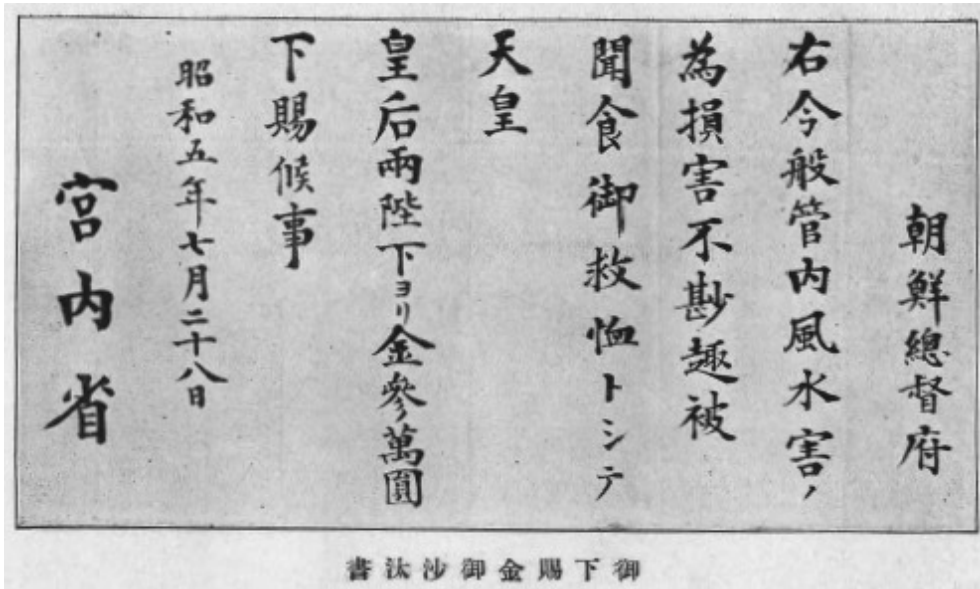 朝鮮總督府
右今般管内風水害ノ
為損害不尠趣被
聞食御救恤トシテ
天皇
皇后兩陛下ヨリ金參萬圓
下賜候事
昭和五年七月二十八日
宮内省
御下賜金御沙汰書